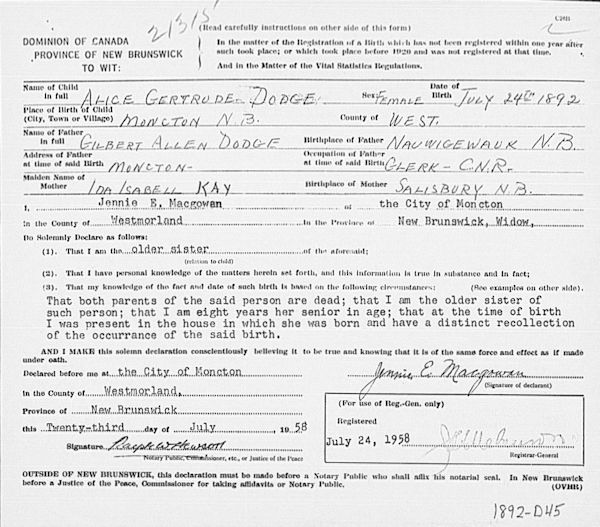 21315
(Read carefully instructions on other side of this form)
DOMINION OF CANADA
PROVINCE OF NEW BRUNSWICK
TO WIT:
In the matter of the Registration of a Birth which has not been registered within one year after
such took place; or which took place before 1920 and was not registered at that time.
And in the Matter of the Vital Statistics Regulations.
Name of Child in full ALICE GERTRUDE DODGE Sex: FEMALE Date of Birth JULY 24TH 1892
Place of Birth of Child (City, Town or Village) MONCTON N.B. County of WEST.
Name of Father in full GILBERT ALLEN DODGE Birthplace of Father NAUWIGEWAUK N.B.
Address of Father at time of said Birth MONCTON- Occupation of Father at time of said Birth CLERK - C.N.R.
Maiden Name of Mother IDA ISABELL KAY Birthplace of Mother SALISBURY N.B.
I, Jennie E. Macgowan of the City of Moncton
in the County of Westmorland in the Province of New Brunswick, Widow,
Do Solemnly Declare as follows:
(1). That I am the older sister of the aforesaid;
(relation to child)
(2). That I have personal knowledge of the matters herein set forth, and this information is true in substance and in fact;
(3). That my knowledge of the fact and date of such birth is based on the following circumstances: (See examples on other side).
That both parents of the said person are dead; that I am the older sister of
such person; that I am eight years her senior in age; that at the time of birth
I was present in the house in which she was born and have a distinct recollection
of the occurance of the said birth.
AND I MAKE this solemn declaration conscientiously believing it to be true and knowing that it is of the same force and effect as if made
under oath.
Declared before me at the City of Moncton
Jennie E. Macgowan
(Signature of declarant)
in the County of Westmorland,
Province of New Brunswick
this Twenty-third day of July 1958
Signature
Notary Public, Commissioner, etc., or Justice of the Peace
(For use of Reg.-Gen. only)
Registered
July 24, 1958
Registrar-General
OUTSIDE OF NEW BRUNSWICK, this declaration must be made before a Notary Public who shall affix his notarial seal. In New Brunswick
before a Justice of the Peace, Commissioner for taking affidavits or Notary Public.
(OVER)
1892-D45